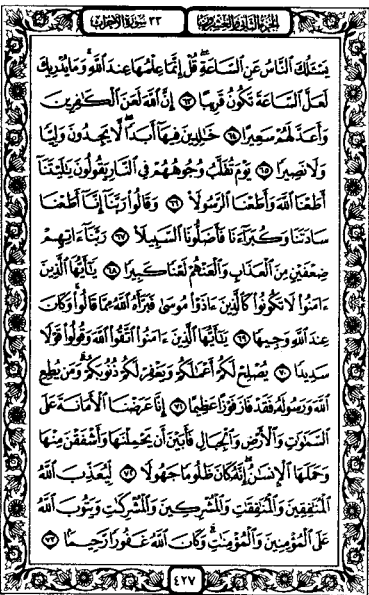 الجزء الثاني والعشرون
٣٣ سورة الأحزاب
يَسْـَٔلُكَ ٱلنَّاسُ عَنِ ٱلسَّاعَةِ ۖ قُلْ إِنَّمَا عِلْمُهَا عِندَ ٱللَّهِ ۚ وَمَا يُدْرِيكَ
لَعَلَّ ٱلسَّاعَةَ تَكُونُ قَرِيبًا ﴿٦٣﴾ إِنَّ ٱللَّهَ لَعَنَ ٱلْكَٰفِرِينَ
وَأَعَدَّ لَهُمْ سَعِيرًا ﴿٦٤﴾ خَٰلِدِينَ فِيهَآ أَبَدًا ۖ لَّا يَجِدُونَ وَلِيًّا
وَلَا نَصِيرًا ﴿٦٥﴾ يَوْمَ تُقَلَّبُ وُجُوهُهُمْ فِي ٱلنَّارِ يَقُولُونَ يَٰلَيْتَنَآ
أَطَعْنَا ٱللَّهَ وَأَطَعْنَا ٱلرَّسُولَا۠ ﴿٦٦﴾ وَقَالُوا۟ رَبَّنَآ إِنَّآ أَطَعْنَا
سَادَتَنَا وَكُبَرَآءَنَا فَأَضَلُّونَا ٱلسَّبِيلَا۠ ﴿٦٧﴾ رَبَّنَآ ءَاتِهِمْ
ضِعْفَيْنِ مِنَ ٱلْعَذَابِ وَٱلْعَنْهُمْ لَعْنًا كَبِيرًا ﴿٦٨﴾ يَٰٓأَيُّهَا ٱلَّذِينَ
ءَامَنُوا۟ لَا تَكُونُوا۟ كَٱلَّذِينَ ءَاذَوْا۟ مُوسَىٰ فَبَرَّأَهُ ٱللَّهُ مِمَّا قَالُوا۟ ۚ وَكَانَ
عِندَ ٱللَّهِ وَجِيهًا ﴿٦٩﴾ يَٰٓأَيُّهَا ٱلَّذِينَ ءَامَنُوا۟ ٱتَّقُوا۟ ٱللَّهَ وَقُولُوا۟ قَوْلًا
سَدِيدًا ﴿٧٠﴾ يُصْلِحْ لَكُمْ أَعْمَٰلَكُمْ وَيَغْفِرْ لَكُمْ ذُنُوبَكُمْ ۗ وَمَن يُطِعِ
ٱللَّهَ وَرَسُولَهُۥ فَقَدْ فَازَ فَوْزًا عَظِيمًا ﴿٧١﴾ إِنَّا عَرَضْنَا ٱلْأَمَانَةَ عَلَى
ٱلسَّمَٰوَٰتِ وَٱلْأَرْضِ وَٱلْجِبَالِ فَأَبَيْنَ أَن يَحْمِلْنَهَا وَأَشْفَقْنَ مِنْهَا
وَحَمَلَهَا ٱلْإِنسَٰنُ ۖ إِنَّهُۥ كَانَ ظَلُومًا جَهُولًا ﴿٧٢﴾ لِّيُعَذِّبَ ٱللَّهُ
ٱلْمُنَٰفِقِينَ وَٱلْمُنَٰفِقَٰتِ وَٱلْمُشْرِكِينَ وَٱلْمُشْرِكَٰتِ وَيَتُوبَ ٱللَّهُ
عَلَى ٱلْمُؤْمِنِينَ وَٱلْمُؤْمِنَٰتِ ۗ وَكَانَ ٱللَّهُ غَفُورًا رَّحِيمًا ﴿٧٣﴾
٤٢٧